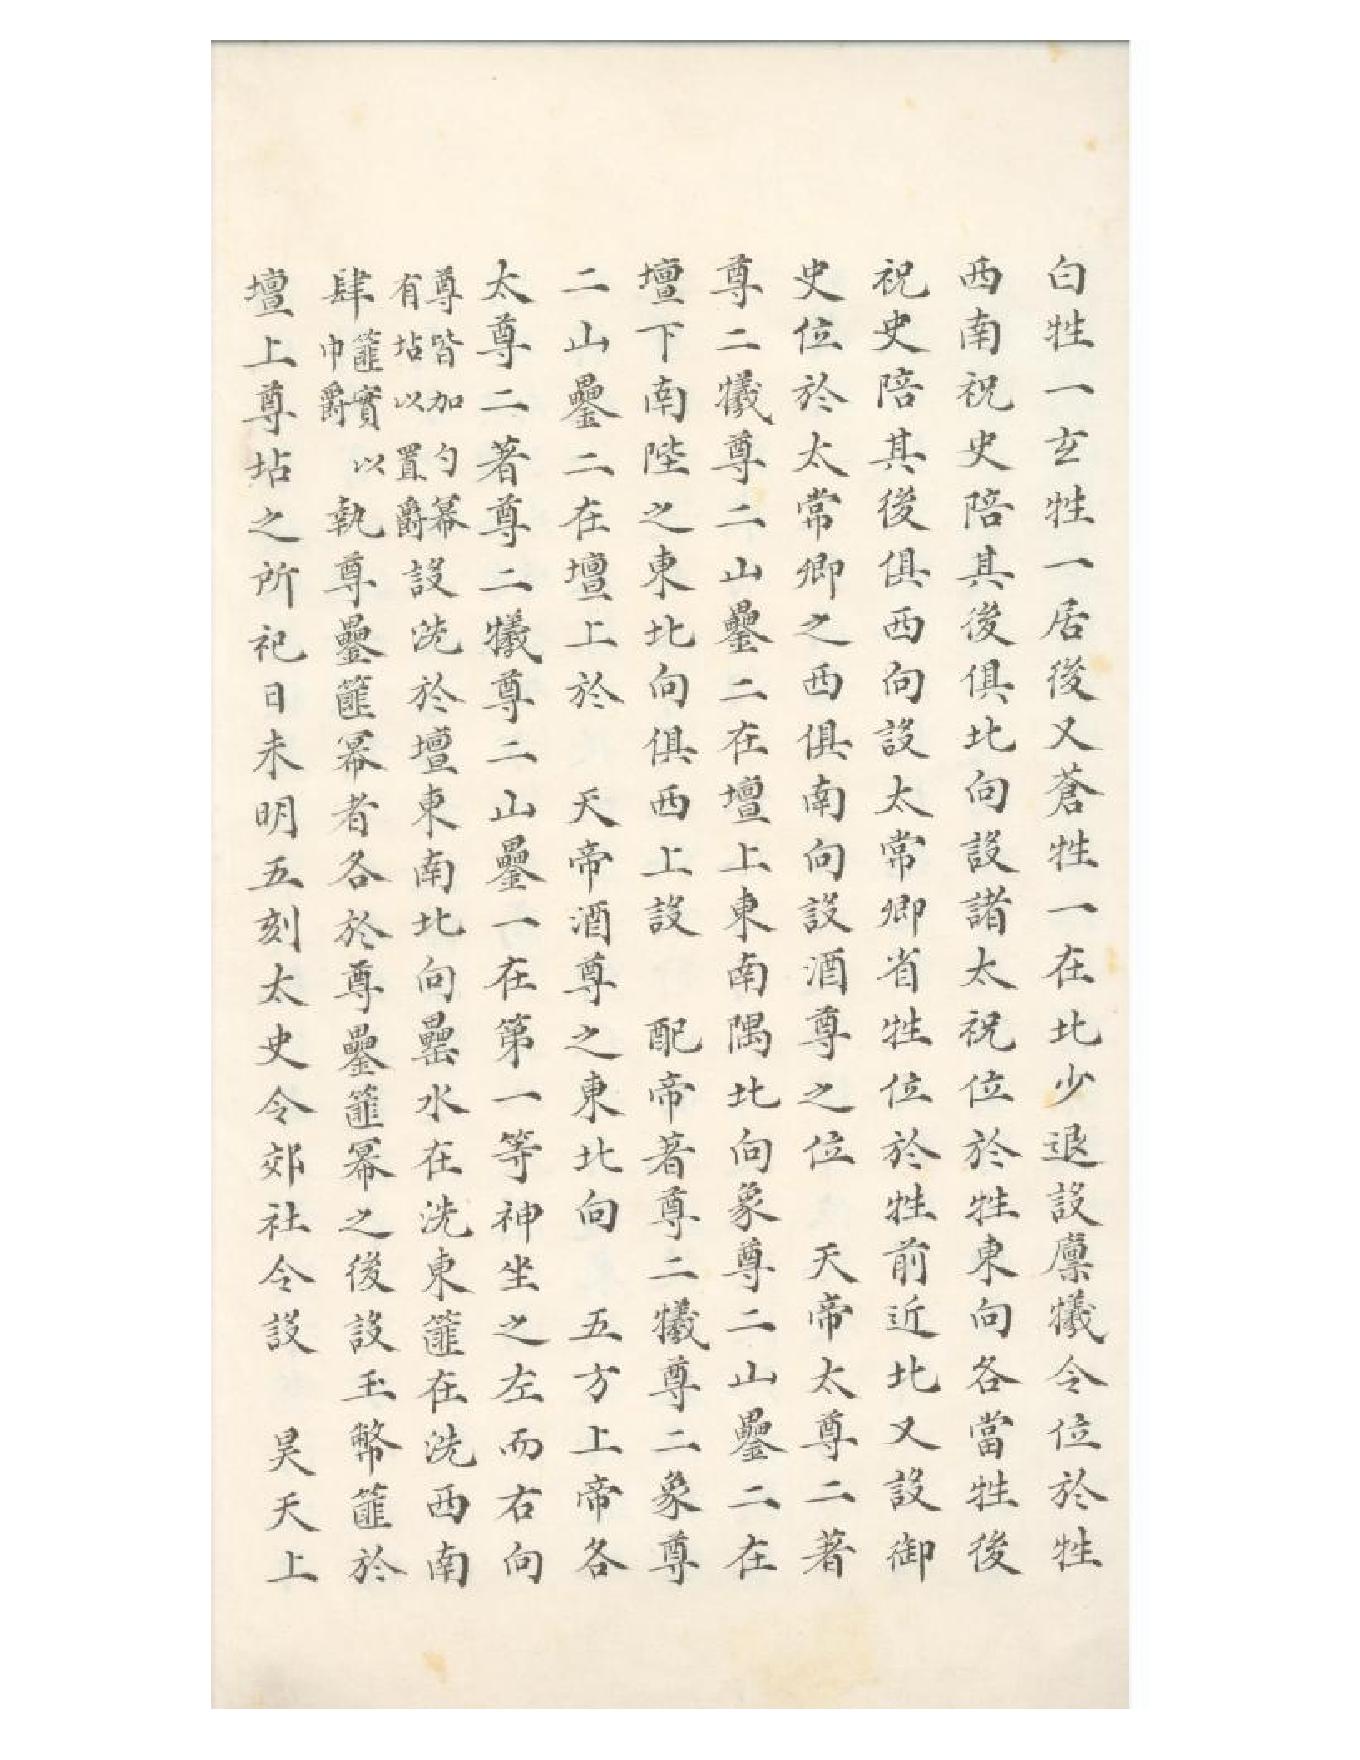 白牲一玄牲一居後又蒼牲一在北少退設廩犧令位於牲
西南祝史陪其後俱北向設諸太祝位於牲東向各當牲後
祝史陪其後俱西向設太常卿省牲位於牲前近北又設御
史位於太常卿之西俱南向設酒尊之位　天帝太尊二著
尊二犧尊二山罍二在壇上東南隅北向象尊二山罍二在
壇下南陛之東北向俱西上設　配帝著尊二犧尊二象尊
二山罍二在壇上於　天帝酒尊之東北向　五方上帝各
太尊二著尊二犧尊二山罍一在第一等神坐之左而右向
尊皆加勺冪
有坫以置爵
設洗於壇東南北向罍水在洗東篚在洗西南
肆
篚實以
巾爵
執尊罍篚冪者各於尊罍篚冪之後設玉幣篚於
壇上尊坫之所祀日未明五刻太史令郊社令設　昊天上